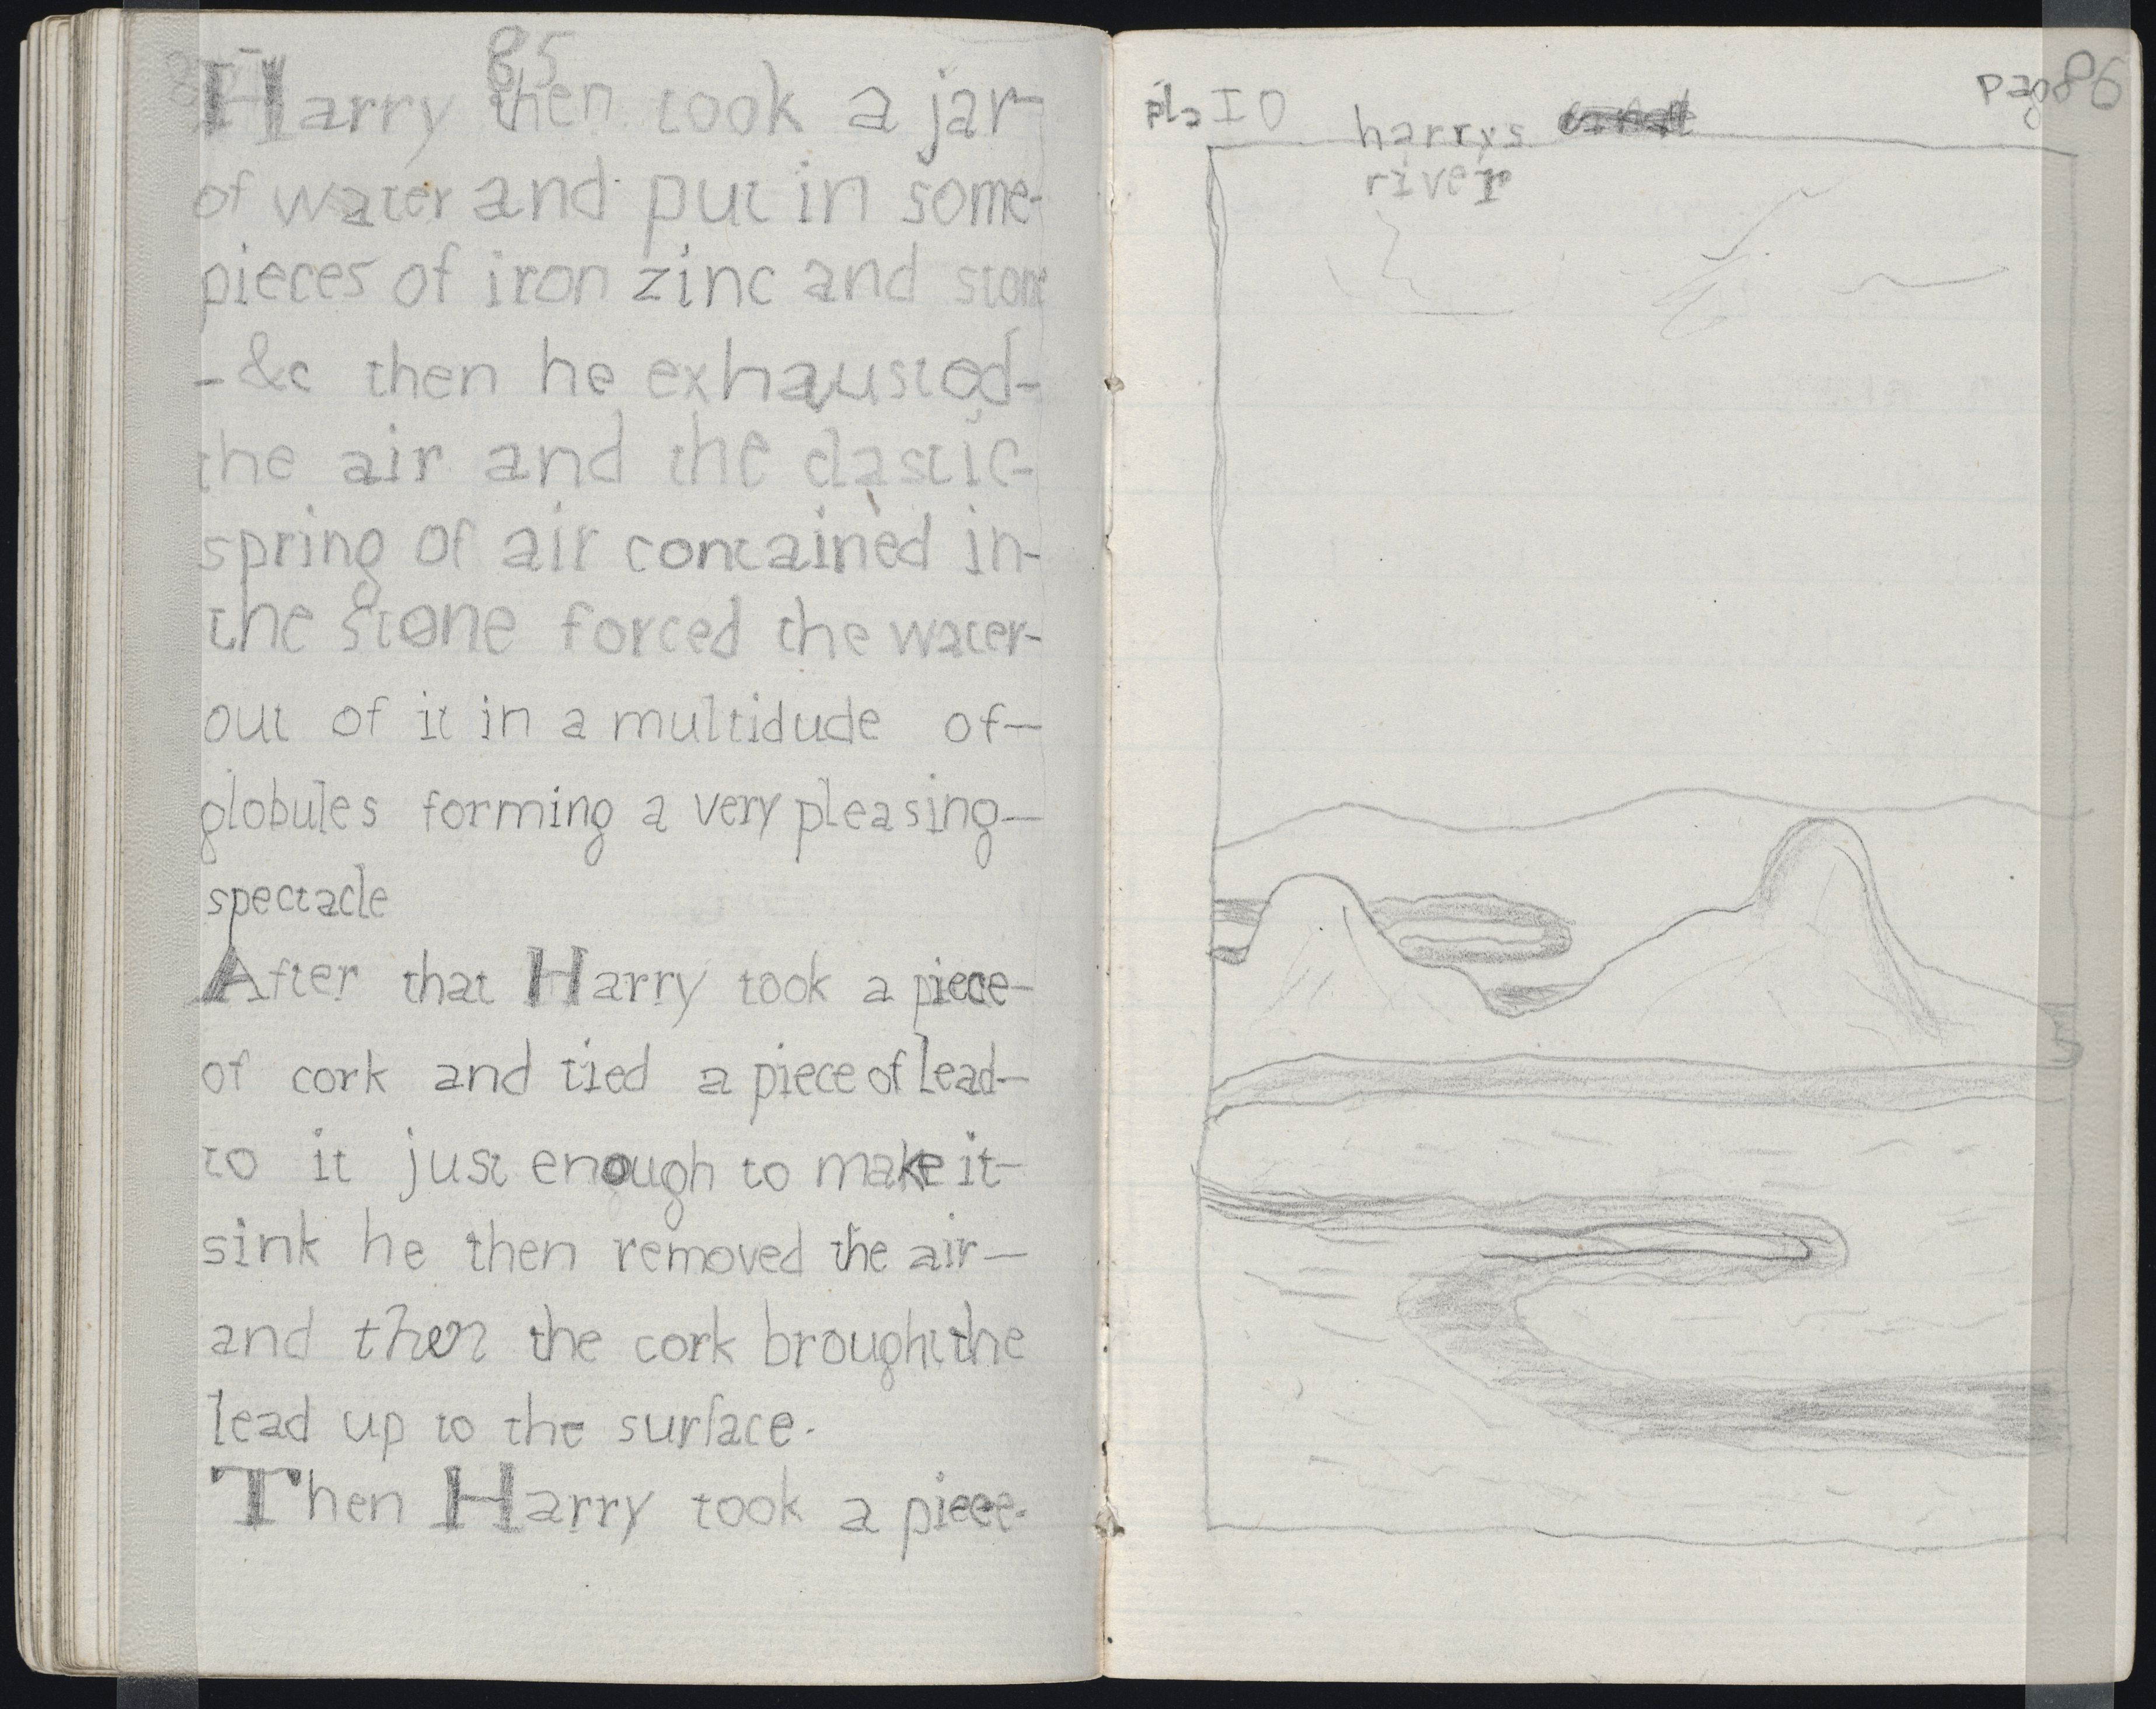 85
Harry then took a jar-
of water and put in some-
pieces of iron zinc and stone
- &c then he exhausted-
the air and the elastic-
spring of air contained in-
the stone forced the water-
out of it in a multidude of—
globules forming a very pleasing—
spectacle
After that Harry took a piece-
of cork and tied a piece of lead-
to it just enough to make it-
sink he then removed the air—
and then the cork brought the
lead up to the surface.
Then Harry took a piece-
pla 10
pag 86
harrys
river